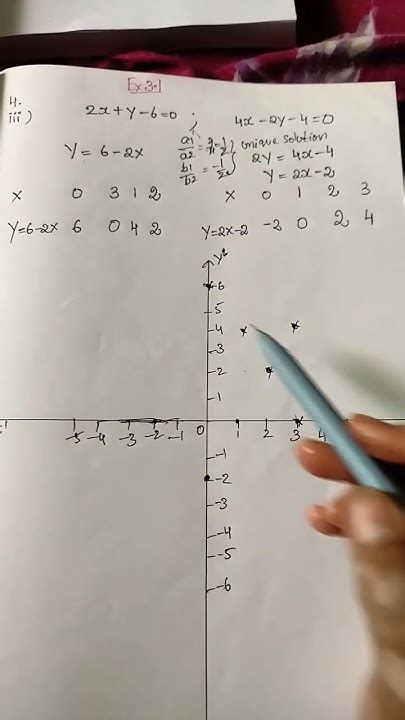 Ex.3.1
4.
iii) 2x+y-6=0 ; 4x-2y-4=0
y = 6-2x
a1/a2 = 2/4 = 1/2
b1/b2 = -1/2
unique solution
2y = 4x-4
y = 2x-2
x 0 3 1 2
y=6-2x 6 0 4 2
x 0 1 2 3
y=2x-2 -2 0 2 4
6
5
4
3
2
1
-5 -4 -3 -2 -1 0 1 2 3 4
-1
-2
-3
-4
-5
-6